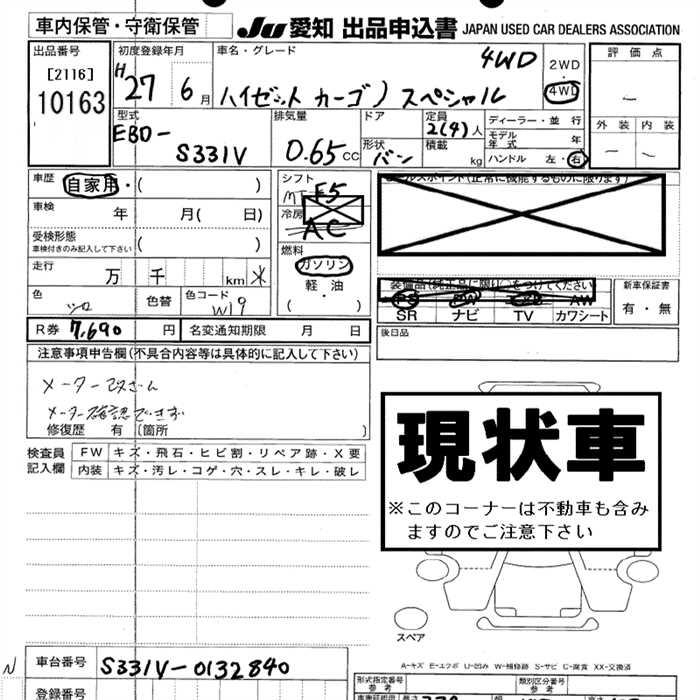 車内保管・守衛保管
JU 愛知 出品申込書 JAPAN USED CAR DEALERS ASSOCIATION
出品番号
[2116]
10163
初度登録年月
H27 6月
車名・グレード
4WD
ハイゼット カーゴ スペシャル
2WD
・
4WD
評価点
外装 内装
型式
EBD-
S331V
排気量
0.65 CC
ドア
形状
バン
定員
2(4)人
積載 kg
ディーラー・並行
モデル年式 年
ハンドル 左・右
車歴 自家用・( )
車検 年 月( 日)
受検形態
車検付きのみ記入して下さい
( )
走行 万 千 km
色
シロ
色替
色コード
W19
シフト
F5
冷房
AC
燃料
ガソリン
軽・油
( )
装備品(純正品に限り)をつけてください
SR ナビ TV カワシート
AW
新車保証書
有・無
R券 7,690 円 名変通知期限 月 日
後日品
注意事項申告欄(不具合内容等は具体的に記入して下さい)
メーター改ざん
メーター確認できず
修復歴 有 (箇所
検査員記入欄
FW キズ・飛石・ヒビ割・リペア跡・X要
内装 キズ・汚レ・コゲ・穴・スレ・キレ・破レ
現状車
※このコーナーは不動車も含み
ますのでご注意下さい
スペア
A-キズ E-エクボ U-凹み W-補修跡 S-サビ C-腐食 XX-交換済
車台番号 S331V-0132840
登録番号
形式指定番号
参考
類別区分番号
参考